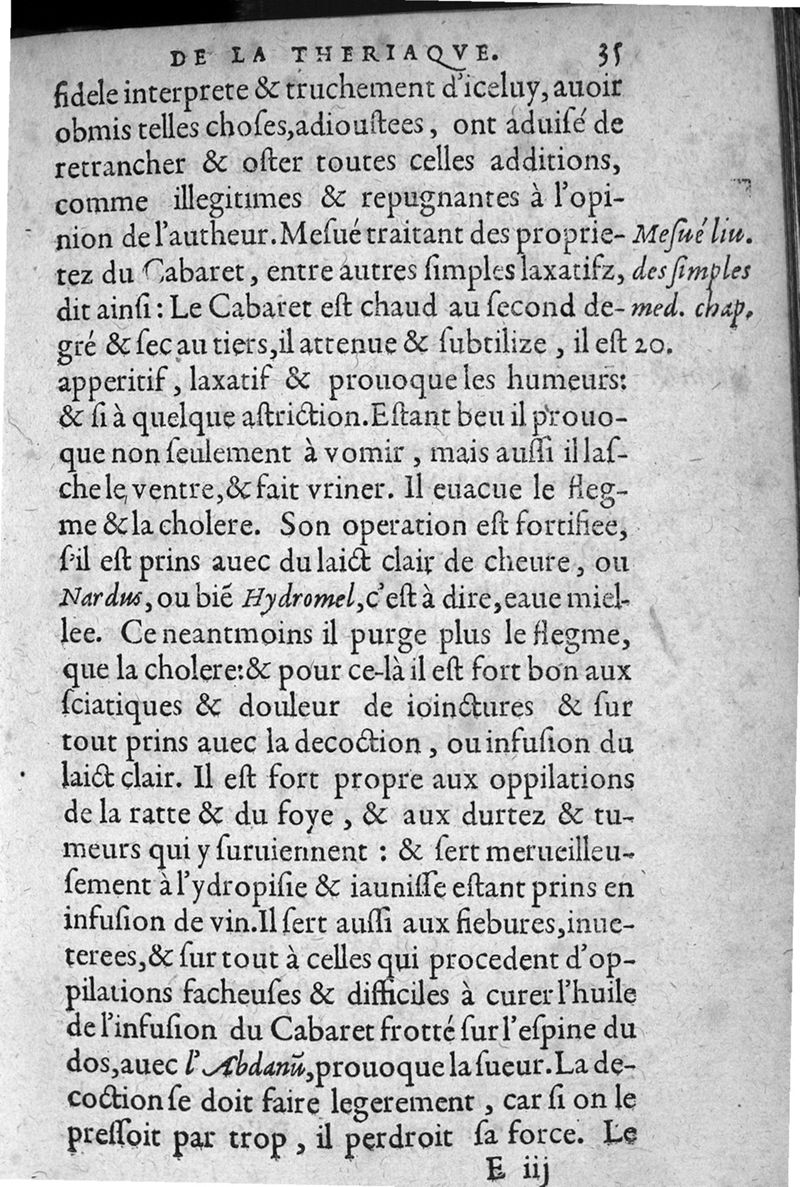 DE LA THERIAQVE. 35
fidele interprete & truchement d'iceluy, auoir
obmis telles choſes,adiouſtees, ont aduiſé de
retrancher & oſter toutes celles additions,
comme illegitimes & repugnantes à l'opi-
nion de l'autheur.Meſué traitant des proprie- Meſué liu.
tez du Cabaret, entre autres ſimples laxatifz, des ſimples
dit ainſi: Le Cabaret eſt chaud au ſecond de- med. chap.
gré & ſec au tiers,il attenue & ſubtilize, il eſt 20.
apperitif, laxatif & prouoque les humeurs:
& ſi à quelque aſtriction.Eſtant beu il prouo-
que non ſeulement à vomir, mais auſſi il laſ-
che le ventre,& fait vriner. Il euacue le fleg-
me & la cholere. Son operation eſt fortifiee,
ſ'il eſt prins auec du laict clair de cheure, ou
Nardus, ou biẽ Hydromel,c'eſt à dire,eaue miel-
lee. Ce neantmoins il purge plus le flegme,
que la cholere:& pour ce-là il eſt fort bon aux
ſciatiques & douleur de ioinctures & ſur
tout prins auec la decoction, ou infuſion du
laict clair. Il eſt fort propre aux oppilations
de la ratte & du foye, & aux durtez & tu-
meurs qui y ſuruiennent: & ſert merueilleu-
ſement à l'ydropiſie & iauniſſe eſtant prins en
infuſion de vin.Il ſert auſſi aux fiebures,inue-
terees,& ſur tout à celles qui procedent d'op-
pilations facheuſes & difficiles à curer l'huile
de l'infuſion du Cabaret frotté ſur l'eſpine du
dos,auec l'Abdanũ,prouoque la ſueur.La de-
coction ſe doit faire legerement, car ſi on le
preſſoit par trop, il perdroit ſa force. Le
E iij